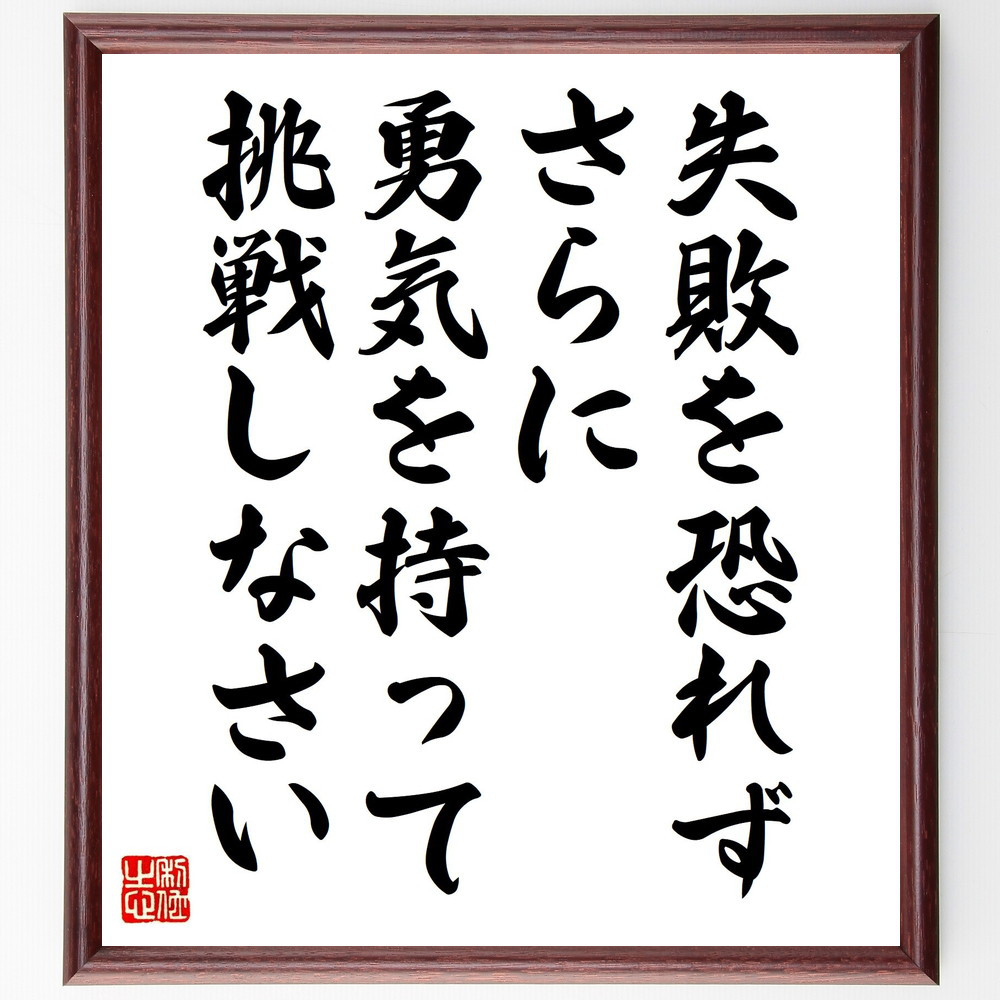 失敗を恐れず
さらに
勇気を持って
挑戦しなさい